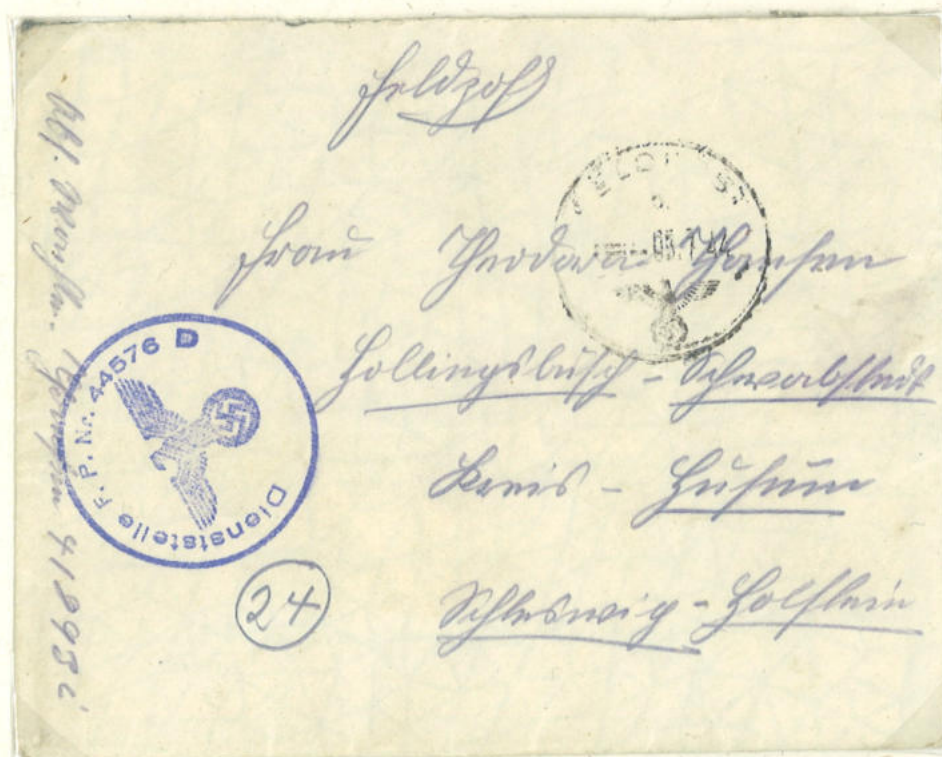 Feldpost
FELDPOST
05.7.44
Frau Theodora Hansen
Hollingsbusch - Schwabstedt
Kreis - Husum
Schleswig - Holstein
24
Dienststelle F. P. Nr. 44576 D
Abs.